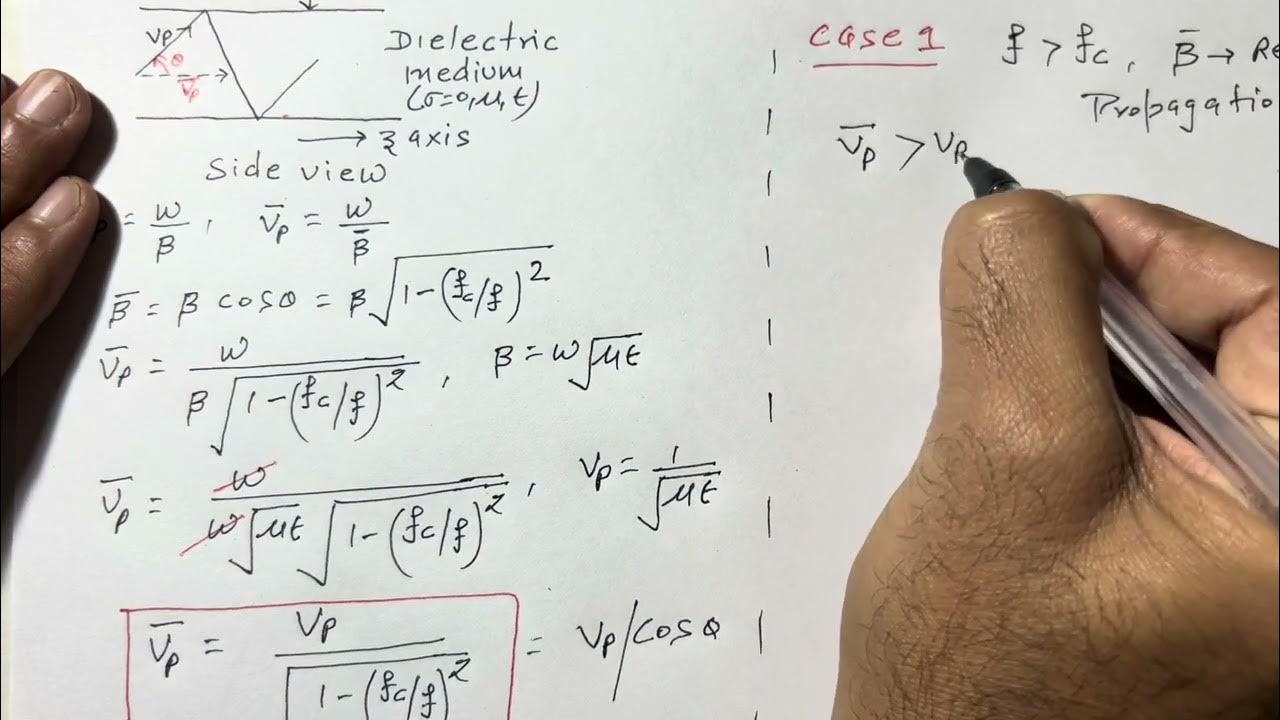 Vp θ
V̅p
Dielectric
medium
(σ=0,μ,ε)
→ z axis
Side view
= ω/β , V̅p = ω/β̅
β̅ = β cosθ = β √(1-(fc/f)²)
V̅p = ω / (β √(1-(fc/f)²)) , β = ω√(με)
V̅p = ω / (ω√(με) √(1-(fc/f)²)) , Vp = 1/√(με)
V̅p = Vp / √(1-(fc/f)²) = Vp/cosθ
Case 1 f > fc , β̅ →
V̅p > Vp